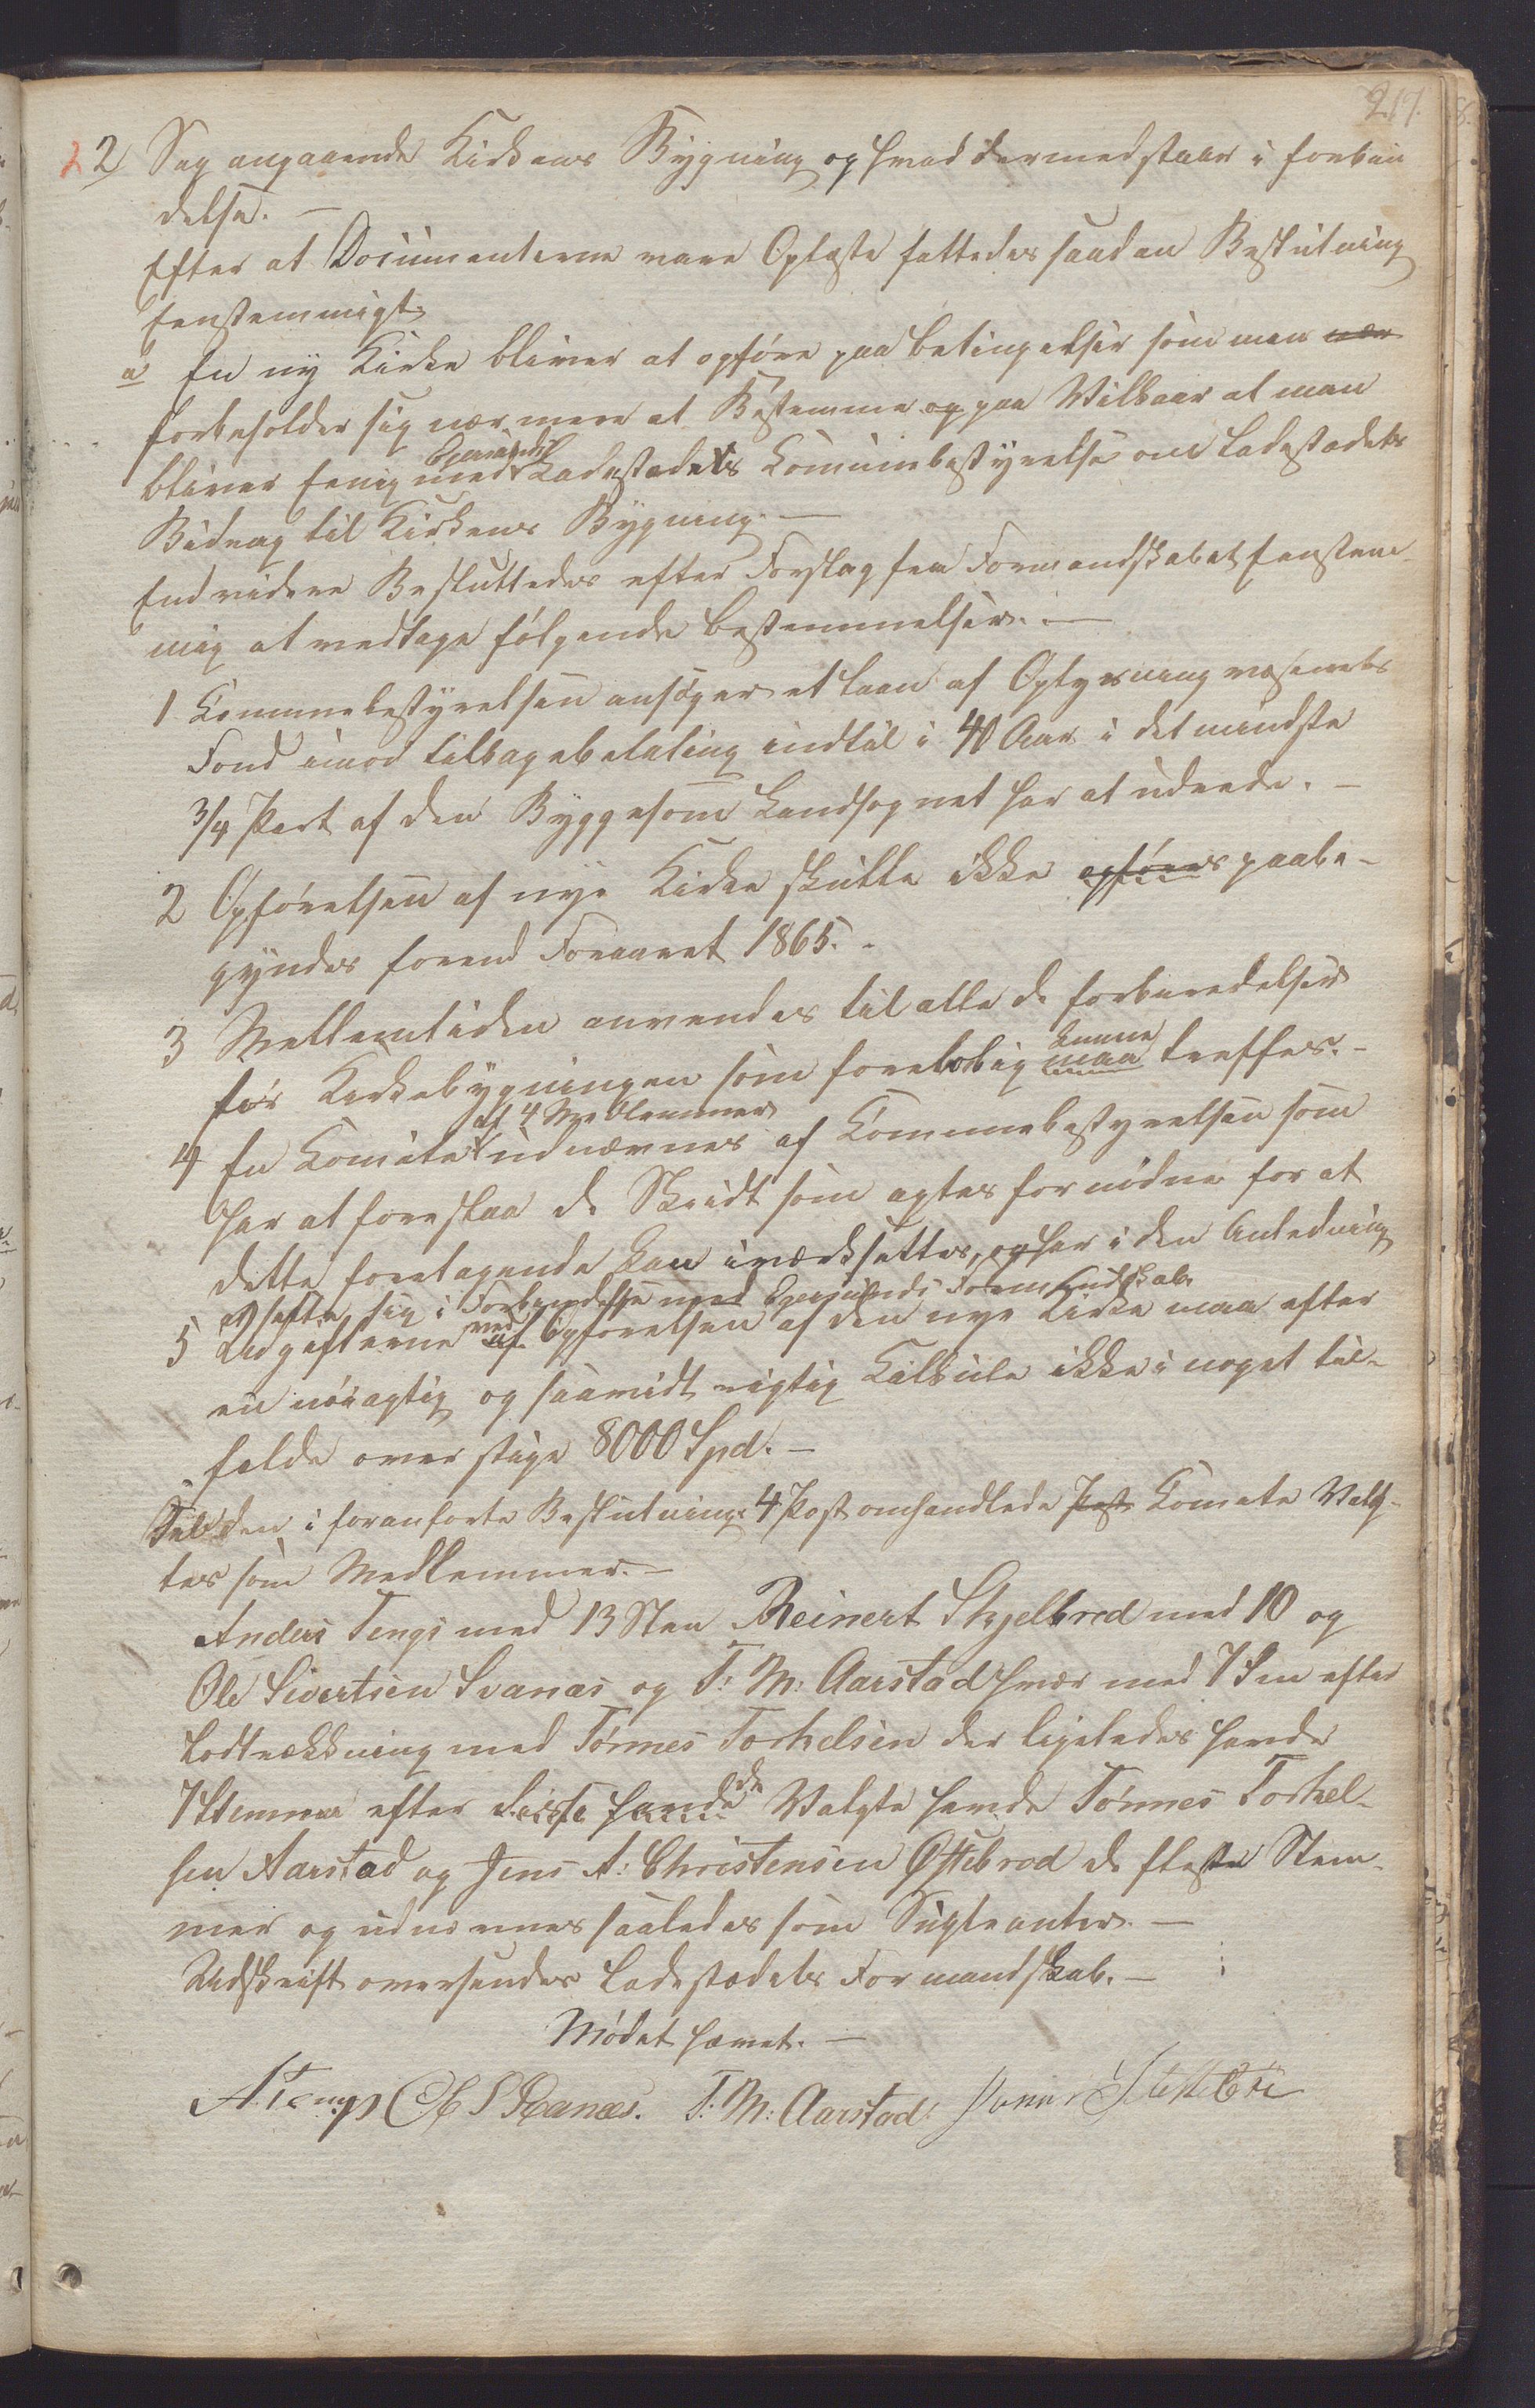 217.
2 2 Sag angaaende Kirkens Bygning og hvad dermed staar i forbin
delse. —
Efter at Documenterne vare Oplæste fattedes saadan Beslutning
Eenstemmigt
a En ny Kirke bliver at opføre paa betingelser som man nær
forbeholder sig nærmere at Bestemme og paa Vilkaar at man
Egersunds
bliver Eenig med Ladestedets Comunebestyrelse om Ladestedets
Bidrag til Kirkens Bygning. —
Endvidere Besluttedes efter Forslag fra Formandskabet Eenstem
mig at vedtage følgende bestemmelser. —
1 Communebestyrelsen ansøger et laan af Oplysningvæsenets
Fond imod tilbagebetaling indtil i 40 Aar i det mindste
3/4 Part af den Byggesom Landsognet har at udrede. —
2 Opførelsen af nye Kirke skulle ikke opføres paabe-
gyndes forend Foraaret 1865. -
3 Mellemtiden anvendes til alle de forberedelser
kunne
for Kirkebygningen som foreløbig maa treffes. -
af 4 Medlemmer
4 En Comite udnævnes af Communebestyrelsen som
har at foreslaa de Skridt som agtes fornødne for at
dette foretagende kan iværksættes, og har i den Anledning
at sætte sig i Forbindelse med Egersunds Formandskab.
ved
5 Udgifterne af Opførelsen af den nye Kirke maa efter
en nöiagtig og saavidt rigtig Calkule ikke i noget til-
felde overstige 8000 Spd. —
Til den i foranforte Beslutnings 4 Post omhandlede Post Comete Valg-
tes som Medlemmer. —
Anders Tengs med 13 Stem Reinert Skjelbred med 10 og
Ole Sivertsen Svanæs og T: M: Aarstad hver med 7 Stem efter
Lodtrækkning med Tönnes Torkelsen der ligeledes havde
de
7 Stemmer efter disse havde Valgte havde Tönnes Torkel-
sen Aarstad og Jens A: Christensen Østebrød de fleste Stem-
mer og udnevnes saaledes som Supleanter. —
Udskrift oversendes Ladestedets Formandskab. —
Mödet hævet. —
A Tengs O S Svanæs. T: M: Aarstad